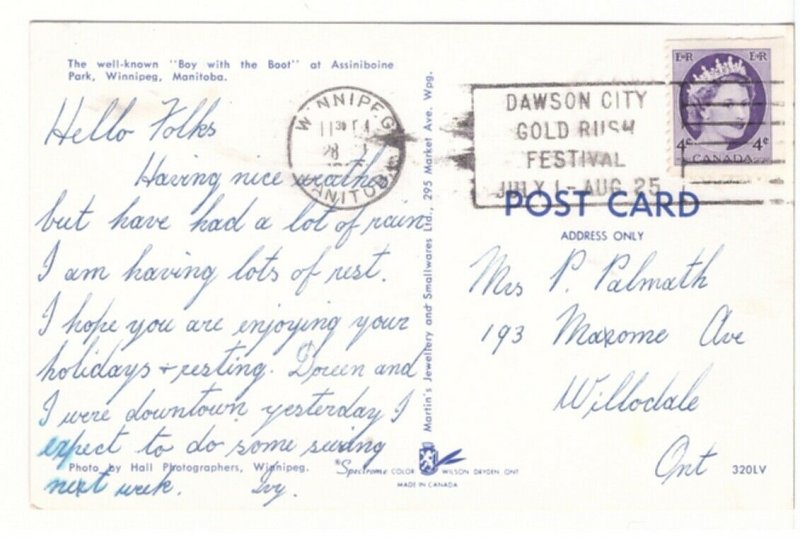 The well-known "Boy with the Boot" at Assiniboine
Park, Winnipeg, Manitoba.
Hello Folks
Having nice weather
but have had a lot of rain
I am having lots of rest.
I hope you are enjoying your
holidays + resting. Doreen and
I were downtown yesterday I
expect to do some sewing
next week. Ivy.
Photo by Hall Photographers, Winnipeg.
Spectrome COLOR WILSON DRYDEN ONT
MADE IN CANADA
Martin's Jewellery and Smallwares Ltd., 295 Market Ave. Wpg.
WINNIPEG
1130
28
MANITOBA
DAWSON CITY
GOLD RUSH
FESTIVAL
JULY 1-AUG 25
E II R E II R
4¢ 4¢
CANADA
POST CARD
ADDRESS ONLY
Mrs P. Palmath
193 Maxome Ave
Willodale
Ont
320LV